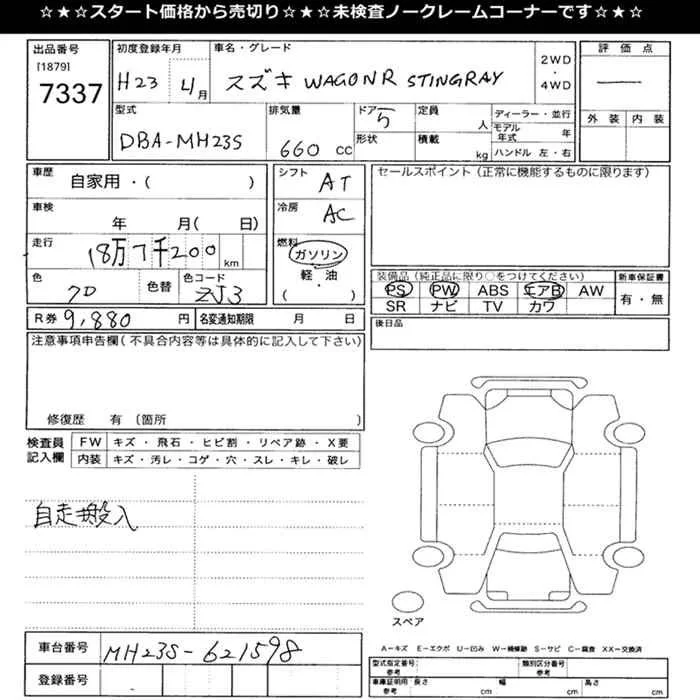 ☆★☆スタート価格から売切り☆★☆未検査ノークレームコーナーです☆★☆
出品番号
[1879]
7337
初度登録年月
H23 4月
車名・グレード
スズキ WAGONR STINGRAY
2WD
・
4WD
評価点
外装 内装
型式
DBA-MH23S
排気量
660 cc
ドア 5
形状
定員 人
積載 kg
ディーラー・並行
モデル年式 年
ハンドル 左・右
車歴
自家用・( )
車検
年 月( 日)
走行
18万7千200 km
色
色替
色コード
ZJ3
シフト AT
冷房 AC
燃料
ガソリン
軽・油
( )
セールスポイント(正常に機能するものに限ります)
装備品(純正品に限り○をつけてください)
PS PW ABS エアB AW
SR ナビ TV カワ
新車保証書
有・無
R券 9,880 円 名変通知期限 月 日
後日品
注意事項申告欄(不具合内容等は具体的に記入して下さい)
修復歴 有 (箇所 )
検査員
記入欄
FW キズ・飛石・ヒビ割・リペア跡・X要
内装 キズ・汚レ・コゲ・穴・スレ・キレ・破レ
自走搬入
スペア
A-キズ E-エクボ U-凹み W-補修跡 S-サビ C-腐食 XX-交換済
車台番号 MH23S-621598
登録番号
型式指定番号 参考
類別区分番号 参考
車庫証明用 参考 長さ cm 幅 cm 高さ cm